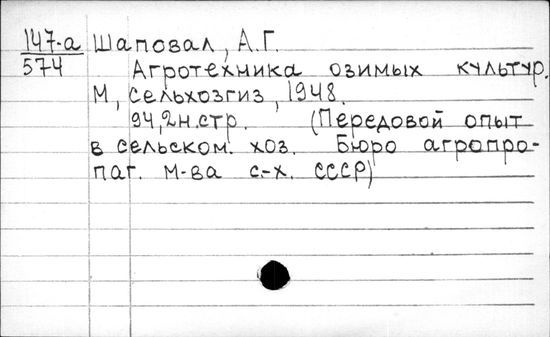 147-а Шаповал, А.Г.
574
Агротехника озимых культур.
М, Сельхозгиз, 1948.
94,2н.стр. (Передовой опыт
в сельском. хоз. Бюро агропро-
паг. м-ва с.-х. СССР)